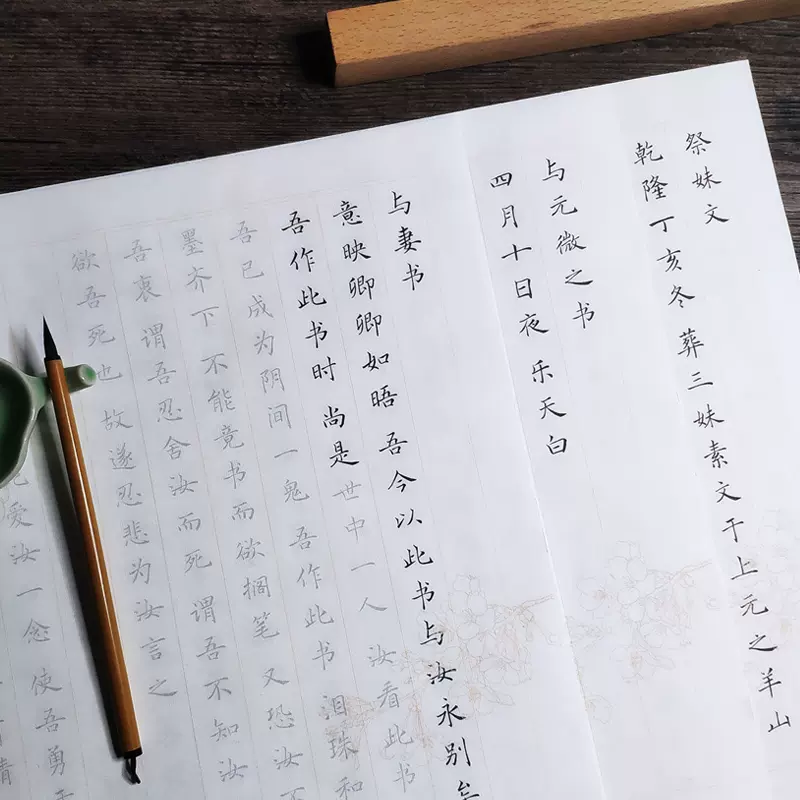 祭妹文
乾隆丁亥冬 葬三妹素文于上元之羊山
与元微之书
四月十日夜 乐天白
与妻书
意映卿卿如晤 吾今以此书与汝永别矣
吾作此书时 尚是世中一人 汝看此书
吾已成为阴间一鬼 吾作此书 泪珠和
墨齐下 不能竟书而欲搁笔 又恐汝不
吾衷 谓吾忍舍汝而死 谓吾不知汝
欲吾死也 故遂忍悲为汝言之
爱汝一念 使吾勇
情